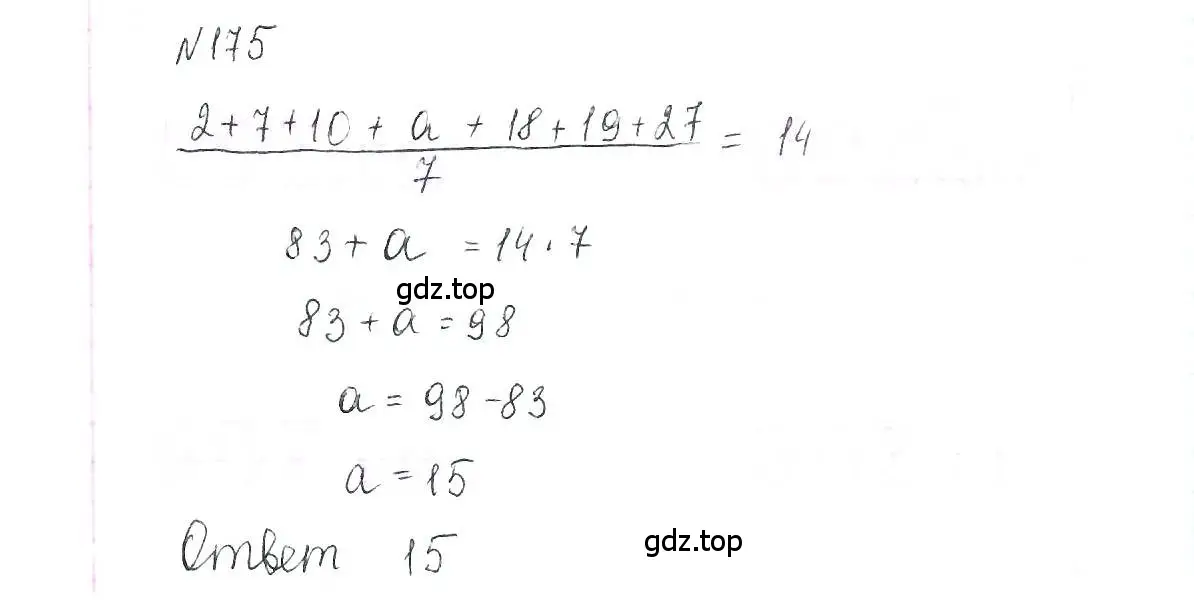 N 175
2+7+10+a+18+19+27 / 7 = 14
83+a = 14·7
gdz.top
83+a=98
a = 98-83
a = 15
Ответ 15
gdz.top